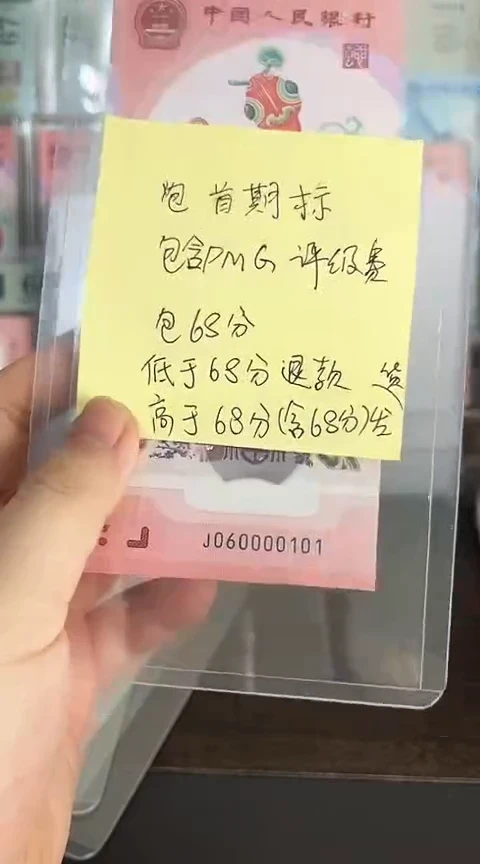 中国人民银行
包首期标
包含PMG 评级费
包68分
低于68分退款
高于68分(含68分)出货
J060000101